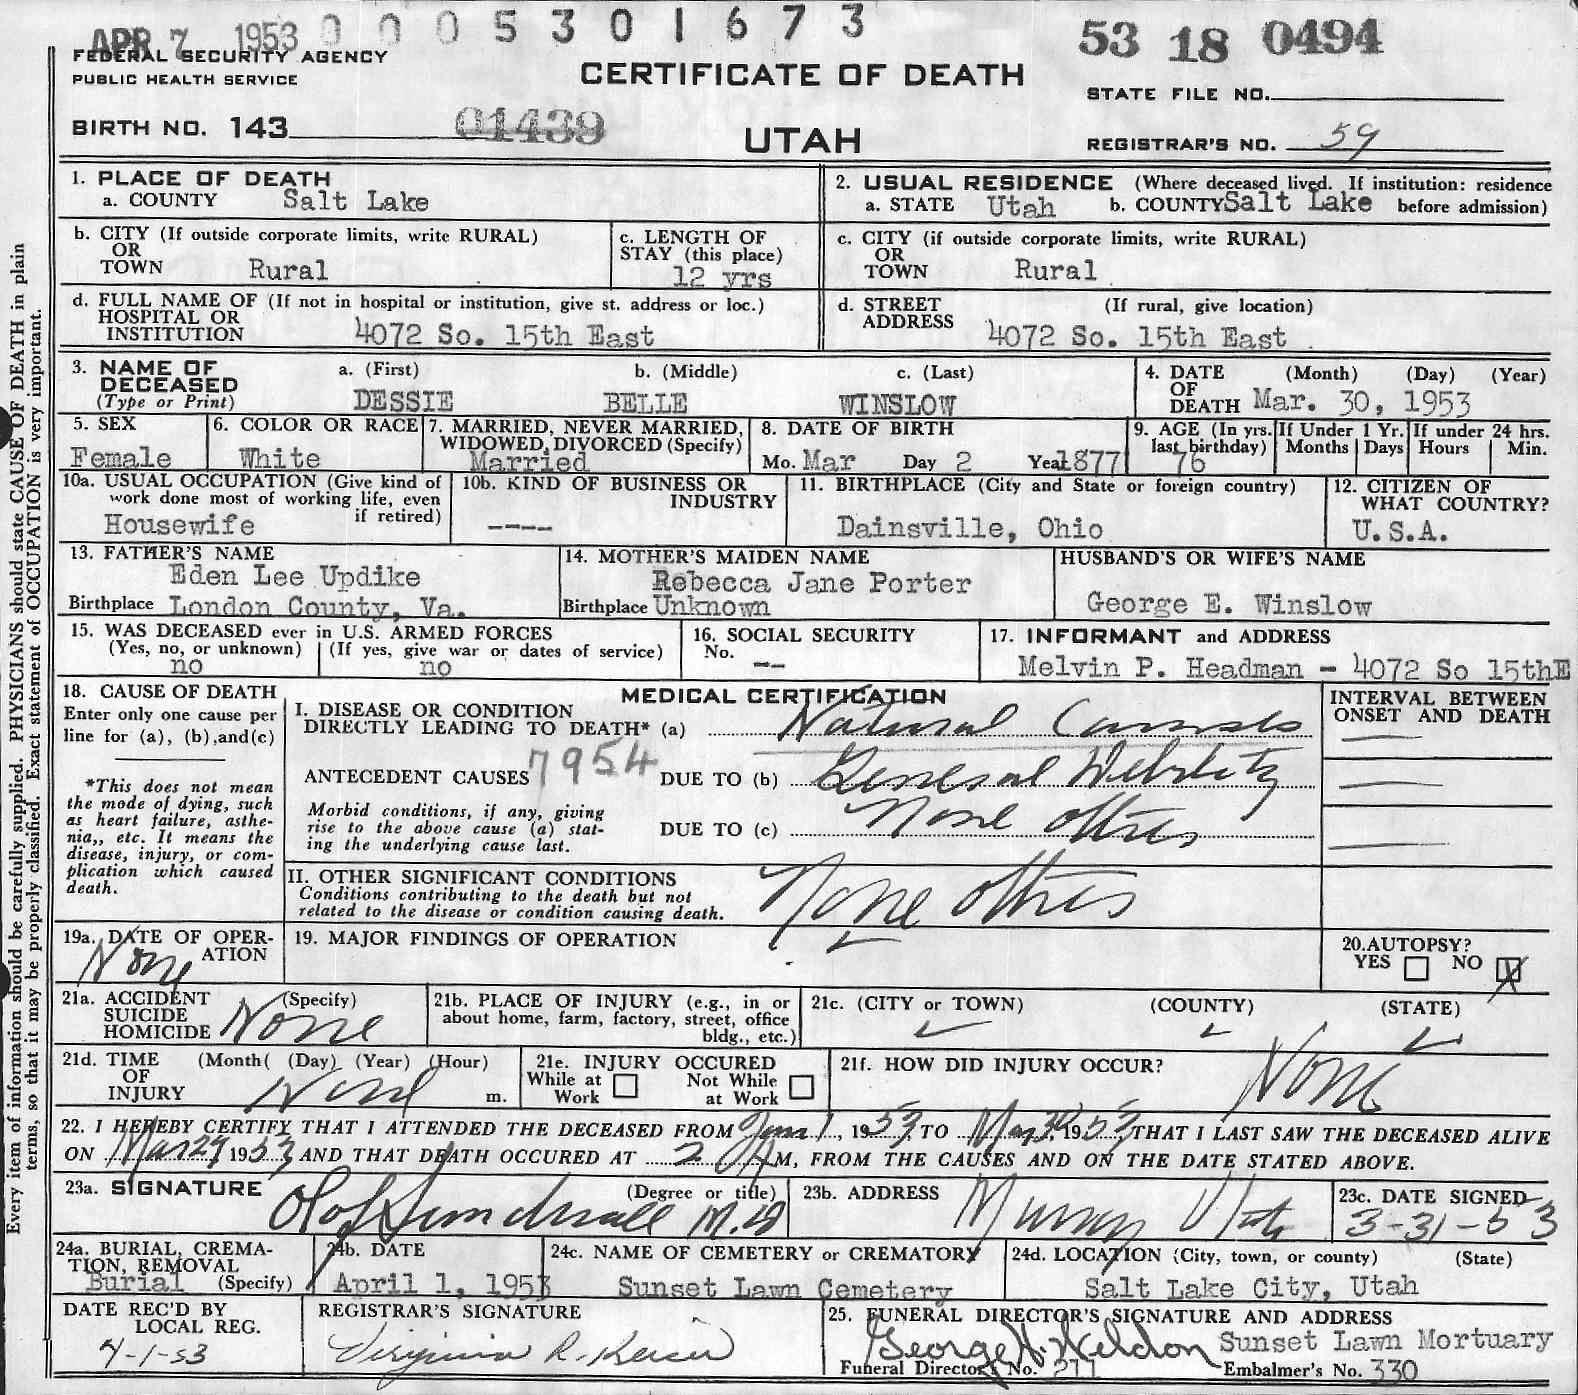 APR 7 1953 0 0 0 5 3 0 1 6 7 3 53 18 0494
FEDERAL SECURITY AGENCY
PUBLIC HEALTH SERVICE
CERTIFICATE OF DEATH
STATE FILE NO.
BIRTH NO. 143 01439
UTAH
REGISTRAR'S NO. 59
1. PLACE OF DEATH
a. COUNTY Salt Lake
2. USUAL RESIDENCE (Where deceased lived. If institution: residence
a. STATE Utah b. COUNTY Salt Lake before admission)
b. CITY (If outside corporate limits, write RURAL)
OR
TOWN Rural
c. LENGTH OF
STAY (this place)
12 yrs
c. CITY (if outside corporate limits, write RURAL)
OR
TOWN Rural
d. FULL NAME OF (If not in hospital or institution, give st. address or loc.)
HOSPITAL OR
INSTITUTION 4072 So. 15th East
d. STREET (If rural, give location)
ADDRESS 4072 So. 15th East
3. NAME OF
DECEASED
(Type or Print)
a. (First) b. (Middle) c. (Last)
DESSIE BELLE WINSLOW
4. DATE (Month) (Day) (Year)
OF
DEATH Mar. 30, 1953
5. SEX
Female
6. COLOR OR RACE
White
7. MARRIED, NEVER MARRIED,
WIDOWED, DIVORCED (Specify)
Married
8. DATE OF BIRTH
Mo. Mar Day 2 Year 1877
9. AGE (In yrs.
last birthday)
76
If Under 1 Yr.
Months Days
If under 24 hrs.
Hours Min.
10a. USUAL OCCUPATION (Give kind of
work done most of working life, even
if retired)
Housewife
10b. KIND OF BUSINESS OR
INDUSTRY
----
11. BIRTHPLACE (City and State or foreign country)
Dainsville, Ohio
12. CITIZEN OF
WHAT COUNTRY?
U.S.A.
13. FATHER'S NAME
Eden Lee Updike
Birthplace London County, Va.
14. MOTHER'S MAIDEN NAME
Rebecca Jane Porter
Birthplace Unknown
HUSBAND'S OR WIFE'S NAME
George E. Winslow
15. WAS DECEASED ever in U.S. ARMED FORCES
(Yes, no, or unknown) (If yes, give war or dates of service)
no no
16. SOCIAL SECURITY
No. --
17. INFORMANT and ADDRESS
Melvin P. Headman - 4072 So 15thE
18. CAUSE OF DEATH
Enter only one cause per
line for (a), (b), and (c)
*This does not mean
the mode of dying, such
as heart failure, asthe-
nia,, etc. It means the
disease, injury, or com-
plication which caused
death.
MEDICAL CERTIFICATION
I. DISEASE OR CONDITION
DIRECTLY LEADING TO DEATH* (a) Natural Causes
ANTECEDENT CAUSES 7954 DUE TO (b) General Debility
Morbid conditions, if any, giving
rise to the above cause (a) stat-
ing the underlying cause last.
DUE TO (c) None others
II. OTHER SIGNIFICANT CONDITIONS
Conditions contributing to the death but not
related to the disease or condition causing death.
None others
INTERVAL BETWEEN
ONSET AND DEATH
19a. DATE OF OPER-
ATION
None
19. MAJOR FINDINGS OF OPERATION
20. AUTOPSY?
YES NO X
21a. ACCIDENT (Specify)
SUICIDE
HOMICIDE None
21b. PLACE OF INJURY (e.g., in or
about home, farm, factory, street, office
bldg., etc.)
21c. (CITY or TOWN) (COUNTY) (STATE)
21d. TIME (Month( (Day) (Year) (Hour)
OF
INJURY None m.
21e. INJURY OCCURED
While at Work Not While at Work
21f. HOW DID INJURY OCCUR?
None
22. I HEREBY CERTIFY THAT I ATTENDED THE DECEASED FROM 1, 1953, TO Mar 30, 1953, THAT I LAST SAW THE DECEASED ALIVE
ON Mar 29 1953 AND THAT DEATH OCCURED AT 2 AM, FROM THE CAUSES AND ON THE DATE STATED ABOVE.
23a. SIGNATURE (Degree or title)
Olof Sundwall M.D
23b. ADDRESS
Murray Utah
23c. DATE SIGNED
3-31-53
24a. BURIAL, CREMA-
TION, REMOVAL
Burial (Specify)
24b. DATE
April 1, 1953
24c. NAME OF CEMETERY or CREMATORY
Sunset Lawn Cemetery
24d. LOCATION (City, town, or county) (State)
Salt Lake City, Utah
DATE REC'D BY
LOCAL REG.
4-1-53
REGISTRAR'S SIGNATURE
Virginia R.
25. FUNERAL DIRECTOR'S SIGNATURE AND ADDRESS
George Weldon Sunset Lawn Mortuary
Funeral Director's No. 211 Embalmer's No. 330
Every item of information should be carefully supplied. PHYSICIANS should state CAUSE OF DEATH in plain
terms, so that it may be properly classified. Exact statement of OCCUPATION is very important.